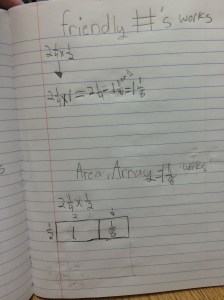 friendly #'s works
2 1/4 × 1/2
2 1/4 × 1 = 2 1/4 - 1 1/8 = 1 1/8
Area, Array = 1 1/8 works
2 1/4 × 1/2
2
1/2 1 1/8